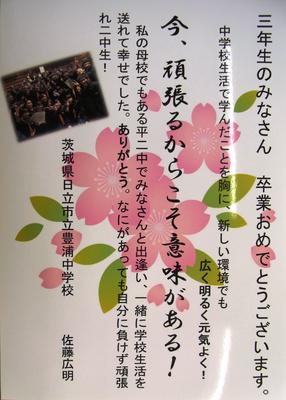 三年生のみなさん　卒業おめでとうございます。
中学校生活で学んだことを胸に、新しい環境でも
広く明るく元気よく！
今、頑張るからこそ意味がある！
私の母校でもある平二中でみなさんと出逢い、一緒に学校生活を
送れて幸せでした。ありがとう。なにがあっても自分に負けず頑張
れ二中生！
茨城県日立市立豊浦中学校　　佐藤広明